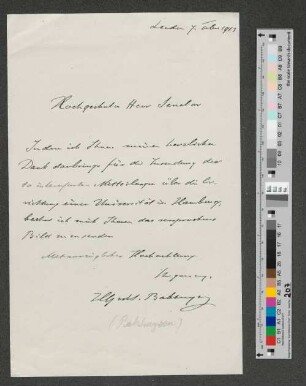 Leiden 7. Febr. 1913
Hochgeehrter Herr Senator
Indem ich Ihnen meinen herzlichen
Dank darbringe für die Zusendung der
so interessanten Mitteilungen über die Er-
richtung einer Universität in Hamburg,
beehre ich mich Ihnen das
Bild zu zusenden
Hochachtung
H. G. v. d. Sande Bakhuyzen
(Bakhuyzen)
207